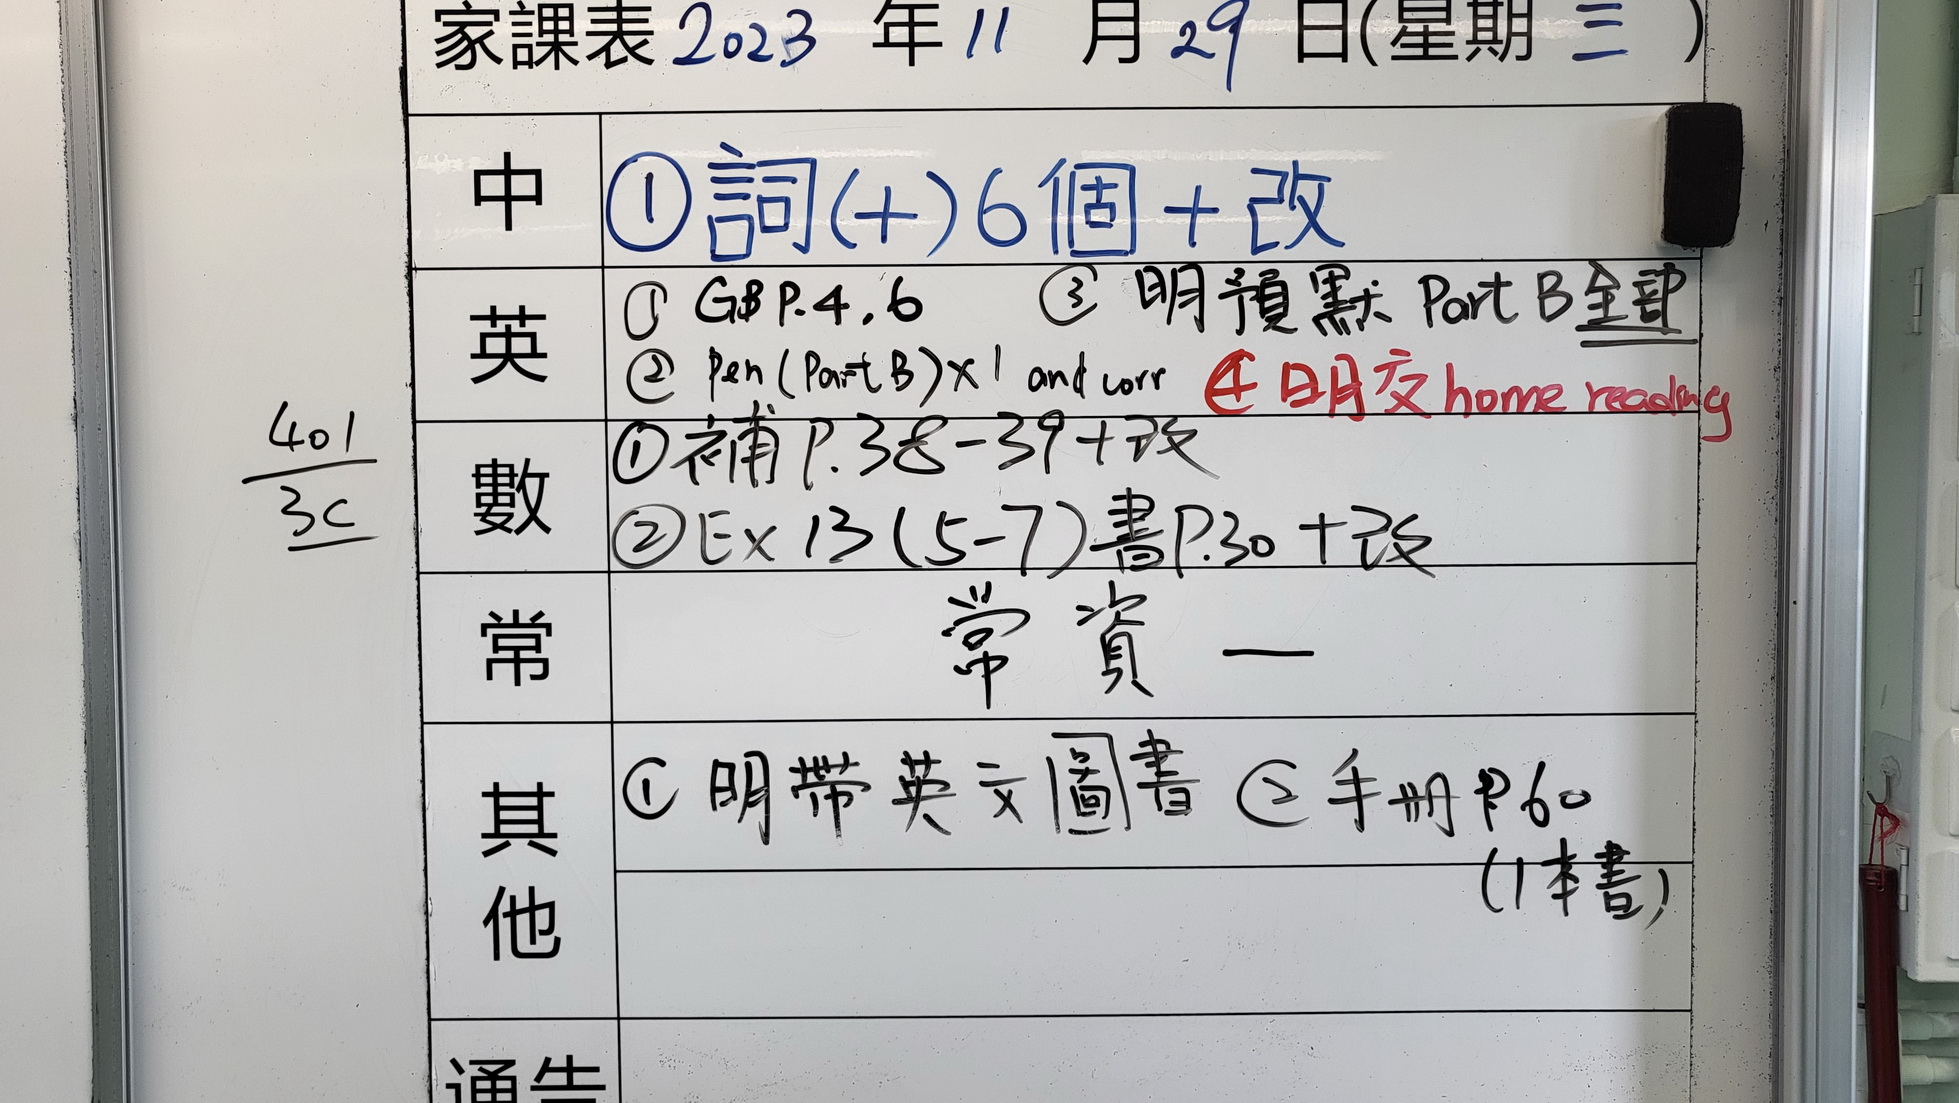 家課表 2023 年 11 月 29 日(星期 三 )
中 ①詞(十)6個+改
英 ① GB P.4, 6 ③ 明預默 Part B 全部
② Pen (Part B) x 1 and corr ④ 明交 home reading
數 ①補 P.38-39+改
②Ex 13 (5-7) 書P.30 +改
401
3C
常 常資一
其他 ① 明帶英文圖書 ② 手册 P60
(1本書)
通告